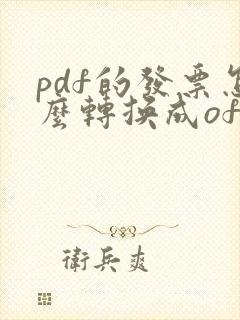 pdf的發票怎
麼轉換成of
衛兵爽